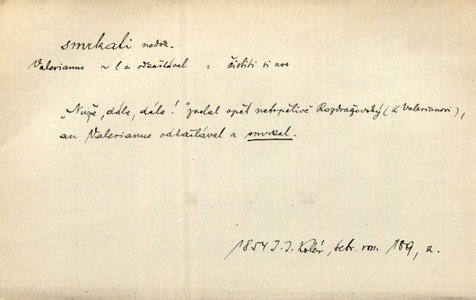 smrkati nedok.
Valerianus ~ l a odkašlával = čistiti si nos
„Nuže, dále, dále!" zvolal opět netrpělivě Rozdražovský (k Valerianovi),
an Valerianus odkašlával a smrkal.
1854 J. J. Kolár, sebr. rom. 189, a.